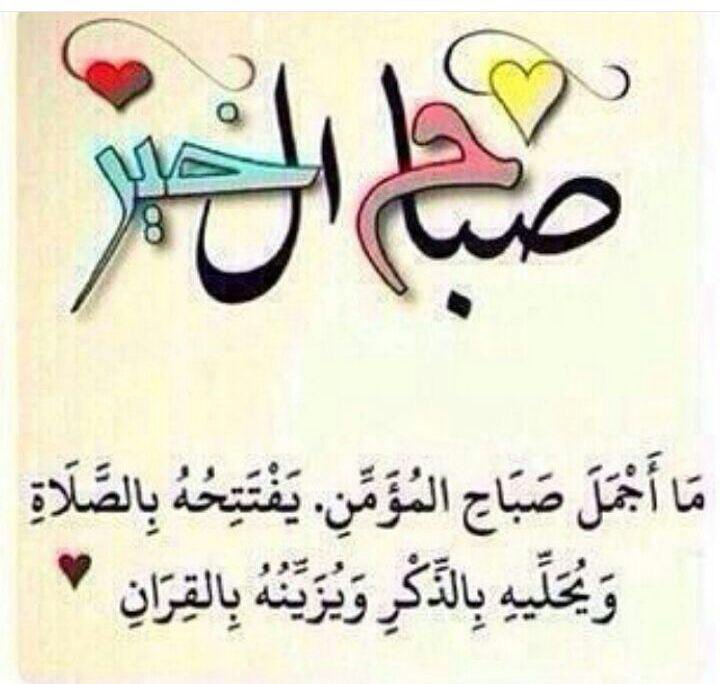 صباح الخير
مَا أَجْمَلَ صَبَاحِ المُؤَمِّنِ. يَفْتَتِحُهُ بِالصَّلَاةِ
وَيُحَلِّيهِ بِالذِّكْرِ وَيُزَيِّنُهُ بِالقِرَانِ